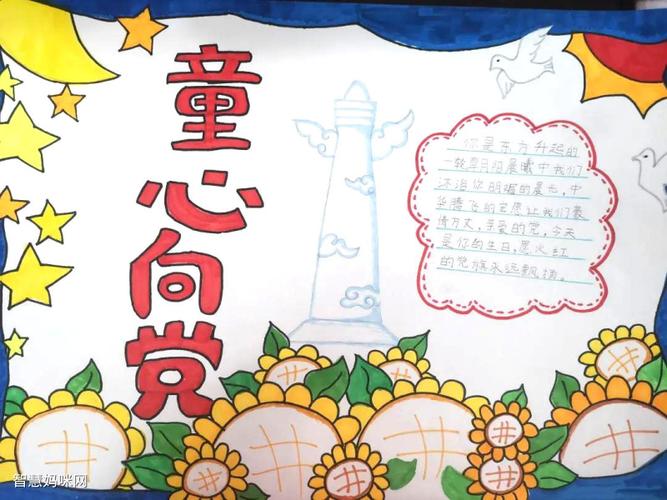 童心向党
你是东方升起的
一轮旭日阳晨曦中我们
沐浴你明媚的晨光，中
华腾飞的宏愿让我们豪
情万丈，亲爱的党，今天
是你的生日，愿火红
的党旗永远飘扬。
智慧妈咪网